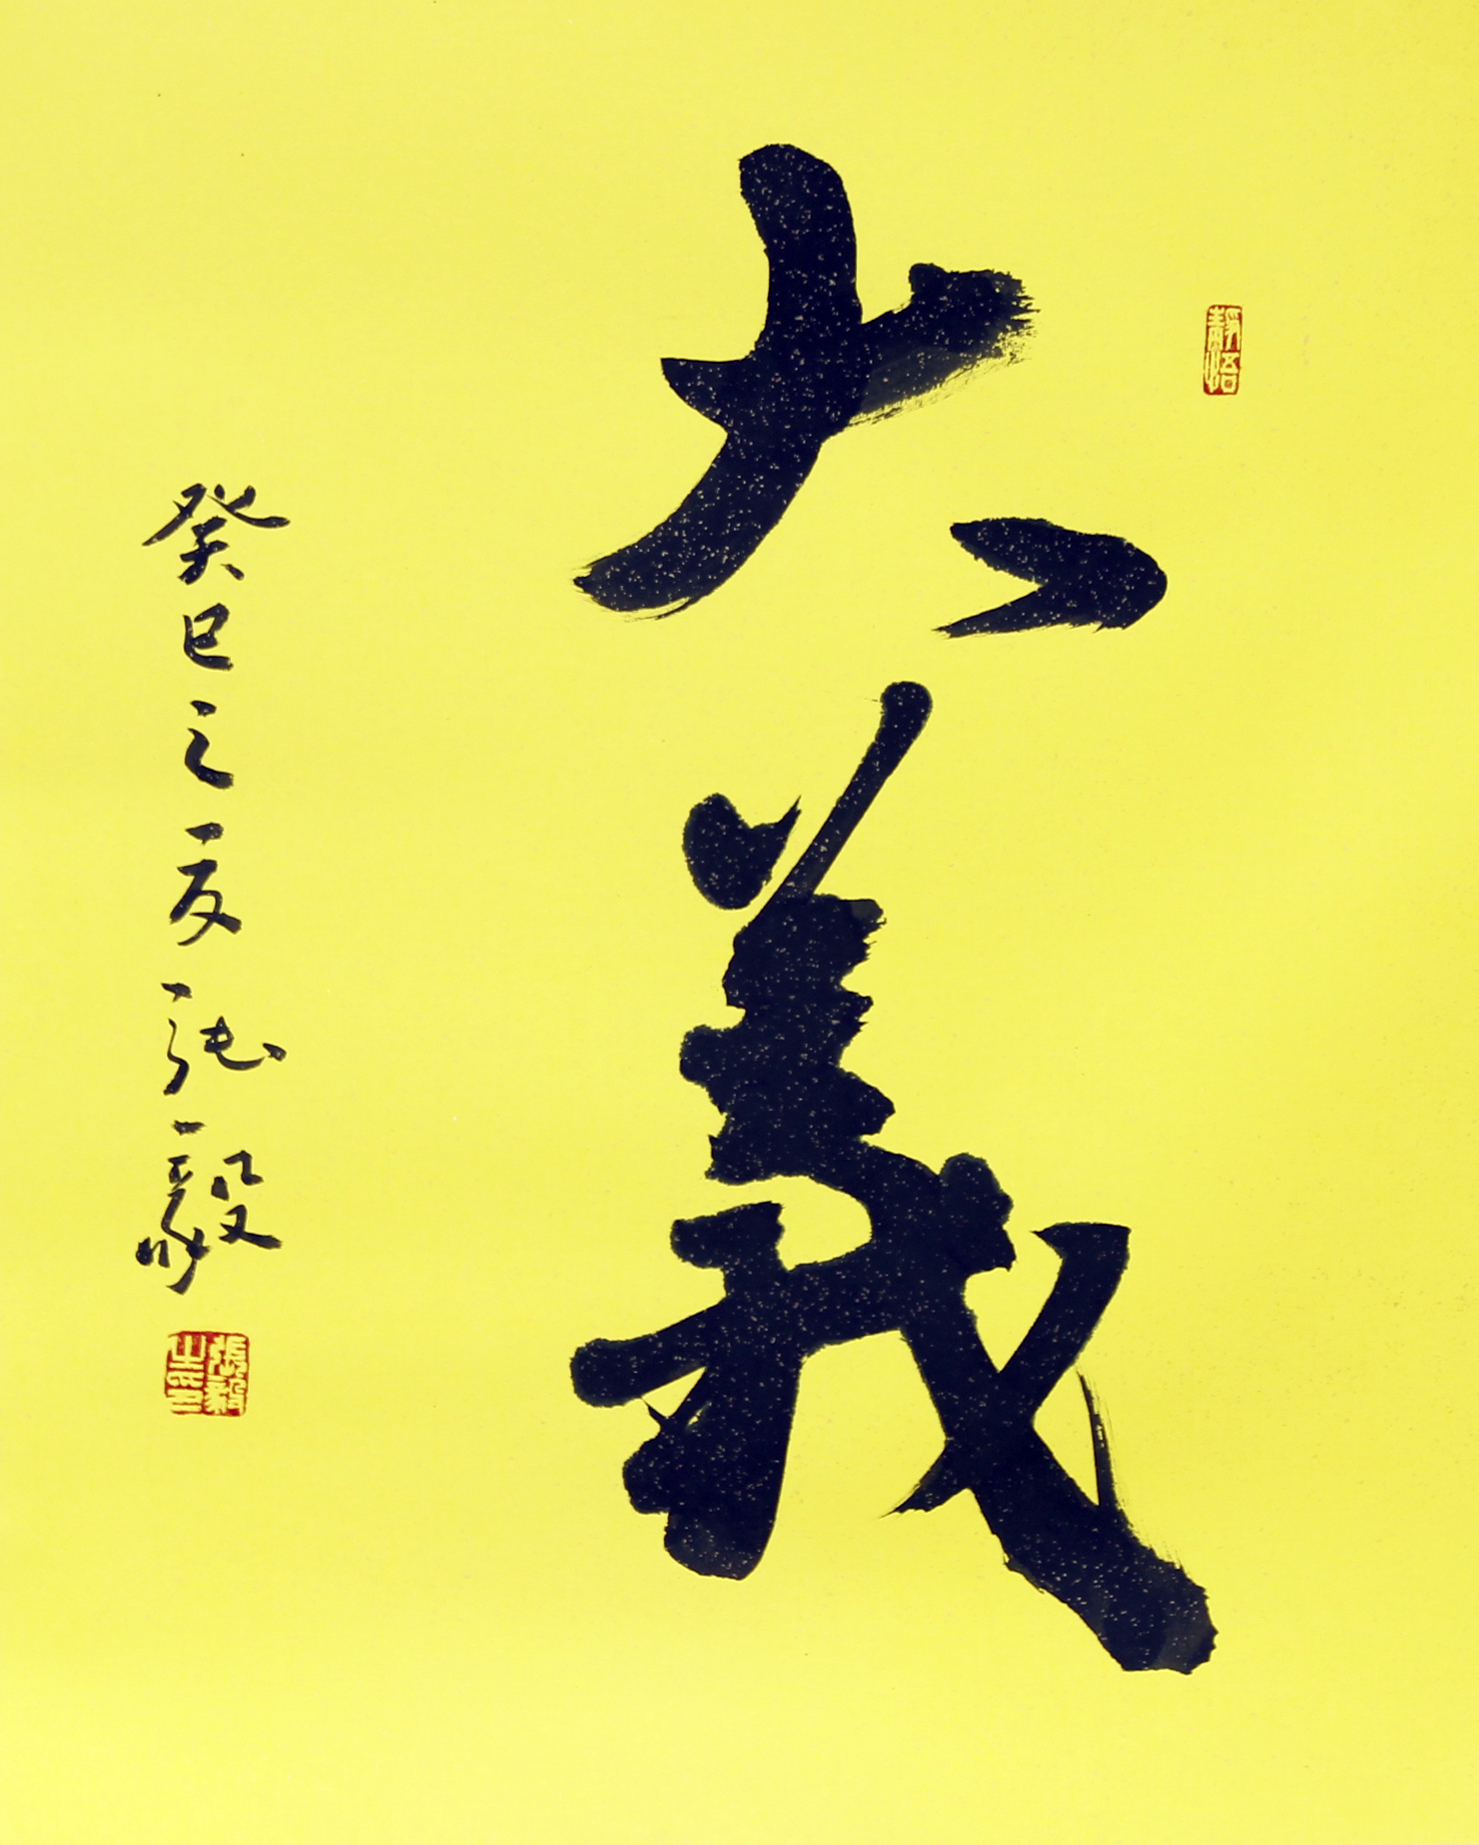 靜悟
大義
癸巳之夏張毅
張毅之印